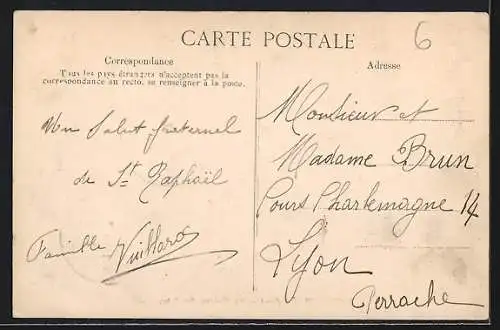 CARTE POSTALE
6
Correspondance
Tous les pays étrangers n'acceptent pas la
correspondance au recto. se renseigner à la poste.
Adresse
Salut fraternel
de St Raphaël
Famille Vuillard
Monsieur et
Madame Brun
Cours Charlemagne 14
Lyon
Perrache